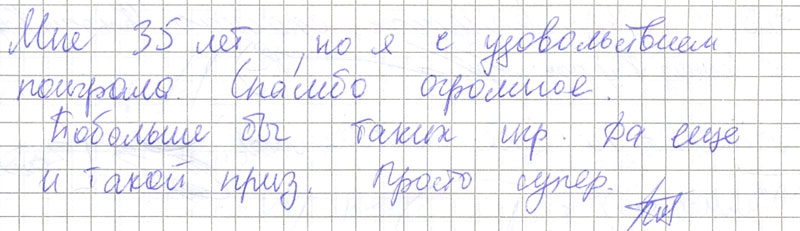 Мне 35 лет, но я с удовольствием
поиграла. Спасибо огромное.
Побольше бы таких игр. Да еще
и такой приз. Просто супер.